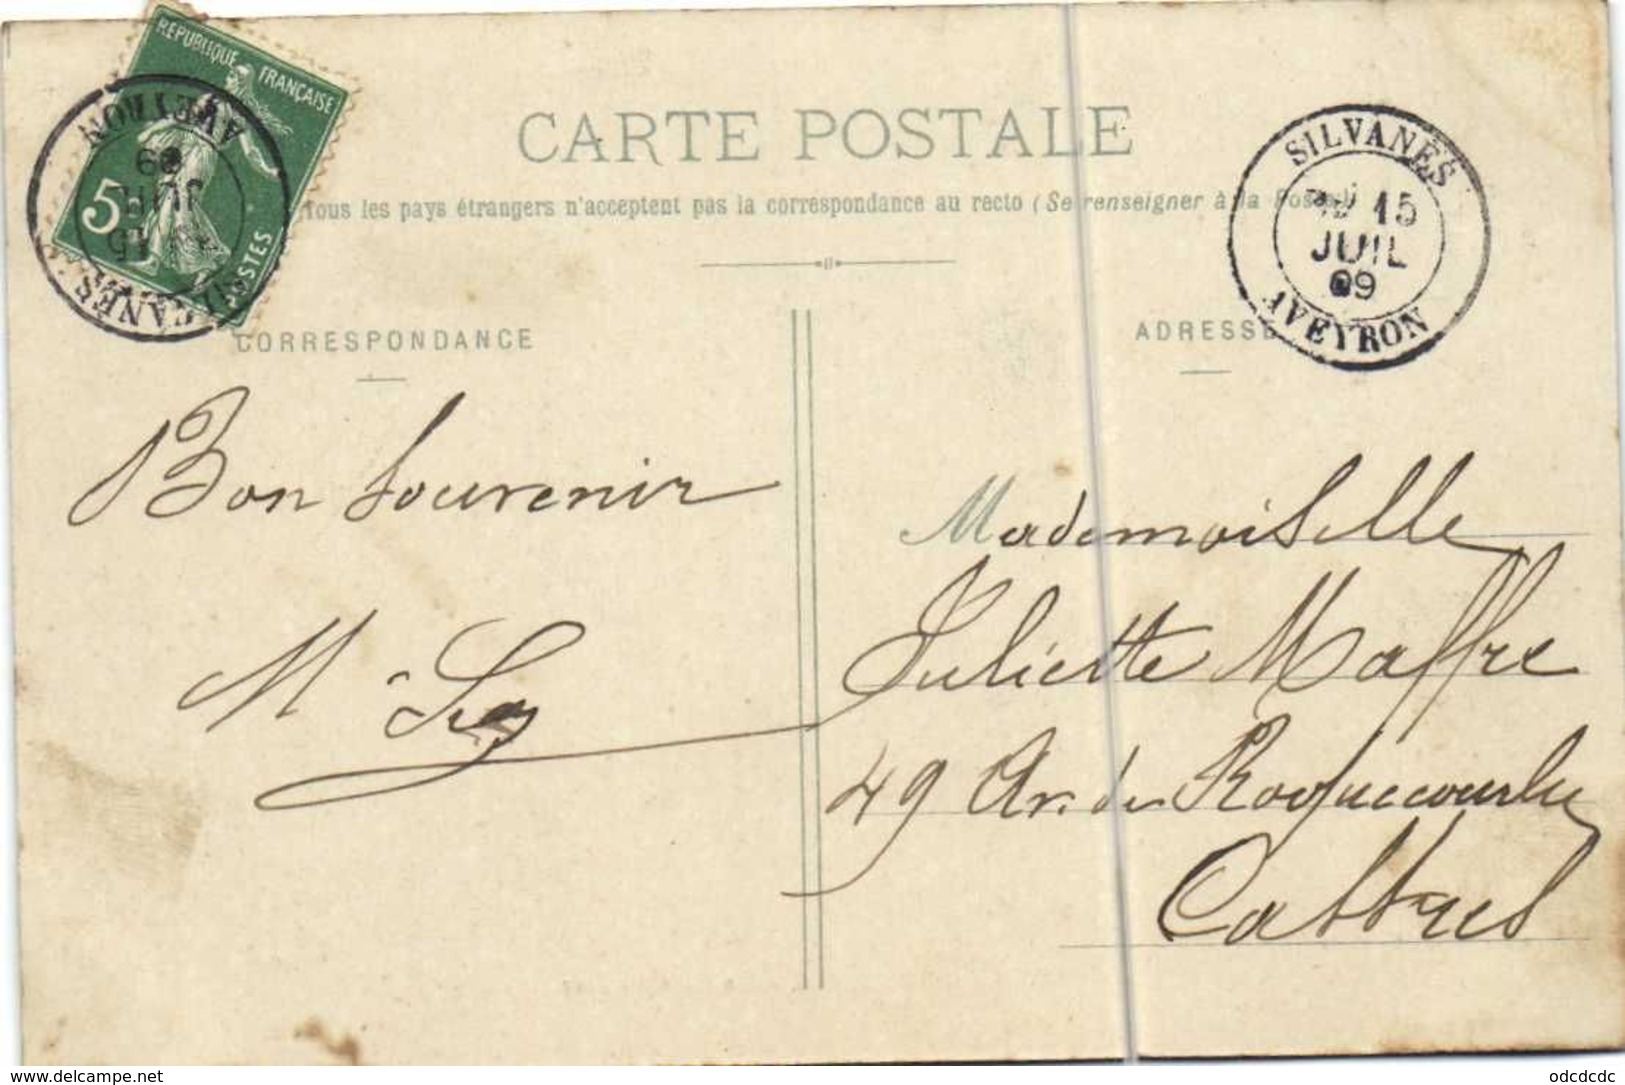 REPUBLIQUE FRANÇAISE
5
POSTES
AVEYRON
15
JUIL
09
SILVANÈS
CARTE POSTALE
Tous les pays étrangers n'acceptent pas la correspondance au recto (Se renseigner à la Poste)
SILVANÈS
15
JUIL
09
AVEYRON
CORRESPONDANCE
ADRESSE
Bon Souvenir
Mademoiselle
Juliette Maffre
49 Av. de Roquecourbe
Castres
delcampe.net
odcdcdc